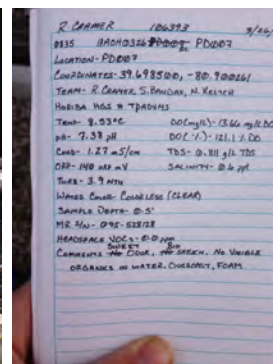 R. CRAMER 106393 3/26/
0835 PD007
LOCATION- PD007
COORDINATES- 39.698500, -80.900261
TEAM- R. CRAMER, S. BANDAY, N. KELTCH
HORIBA HGS # TPADVMS
TEMP- 8.53°C DO(mg/L)- 13.66 mg/L DO
pH- 7.38 pH DO( %)- 121.1 % DO
COND- 1.27 mS/cm TDS- 0.811 g/L TDS
ORP- 140 ORP mV SALINITY- 0.6 ppt
TURB- 3.9 NTU
WATER COLOR- COLORLESS (CLEAR)
SAMPLE DEPTH- 0.5'
MR S/N- 095-528128
HEADSPACE VOCs- 0.0 ppm
SWEET
COMMENTS ODOR, NO SHEEN, NO VISIBLE
ORGANICS IN WATER. OVERCAST, FOAM